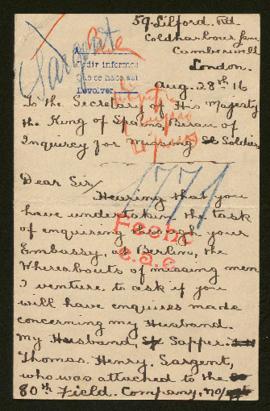 59 Lilford. Rd
Coldharbour Lane
Camberwell
London.
Sargent
Pedir informes
Devolver
Aug. 28th 16
To the Secretary of His Majesty
the King of Spains Bureau of
Inquirey for Missing Soldiers
Dear Sir
Hearing that you
have undertaken the task
of enquiring through your
Embassy, at Berlin, the
Whereabouts of missing men
I venture to ask if you
will have enquires made
concerning my Husband.
My Husband, Sapper.
Thomas. Henry. Sargent,
who was attached to the
80th Field. Company, No/